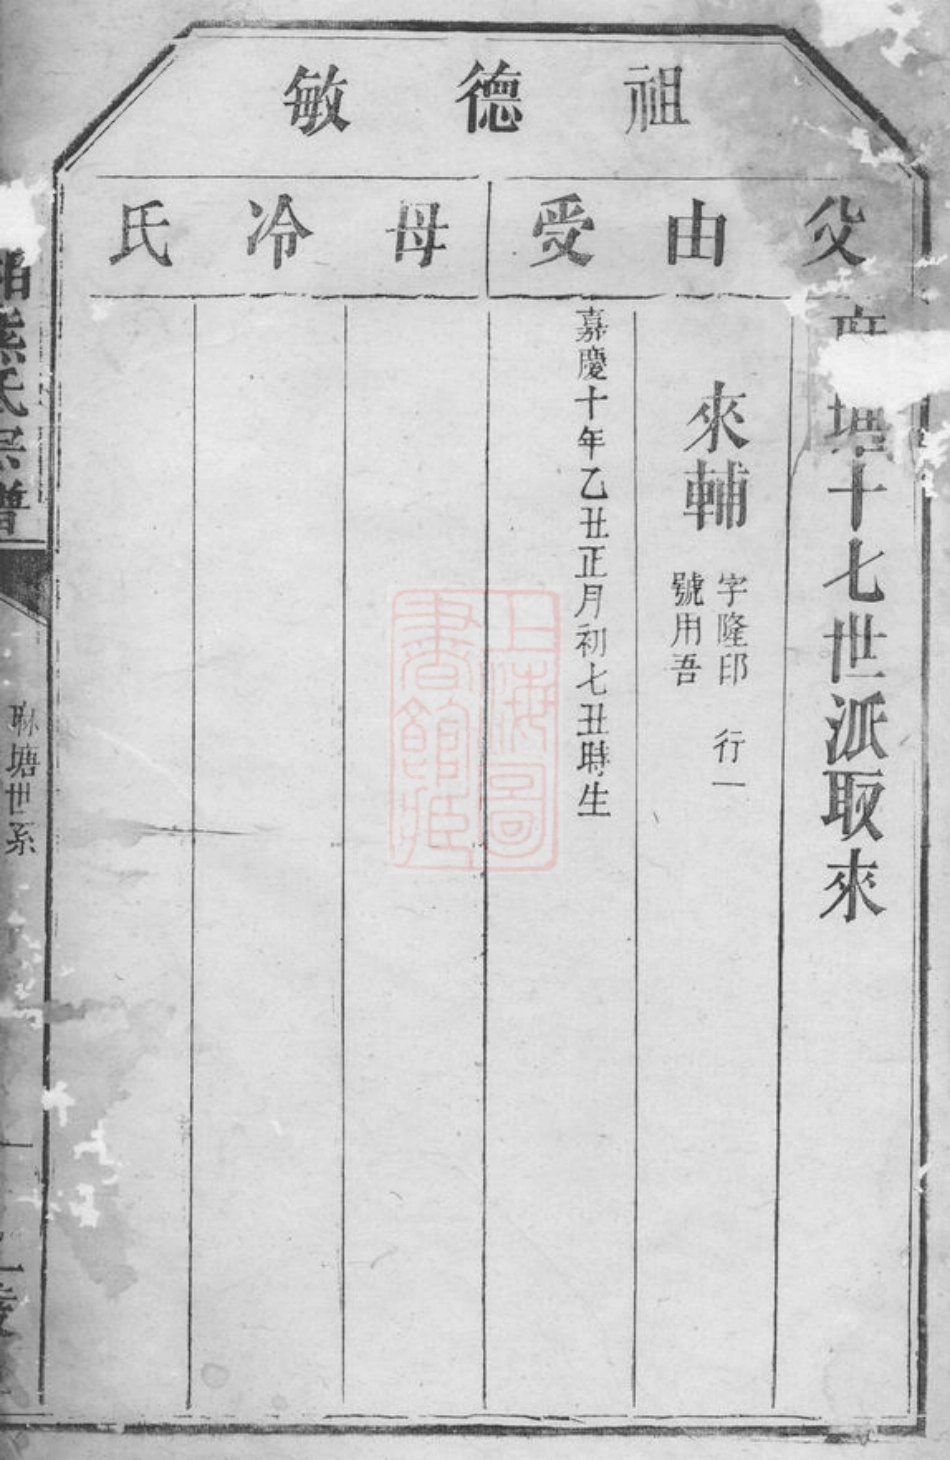 祖德敏
父由受
母冷氏
塘十七世派取來
來輔
字隆印 行一
號用吾
嘉慶十年乙丑正月初七丑時生
熊氏宗譜
聯塘世系
上海圖
書館藏